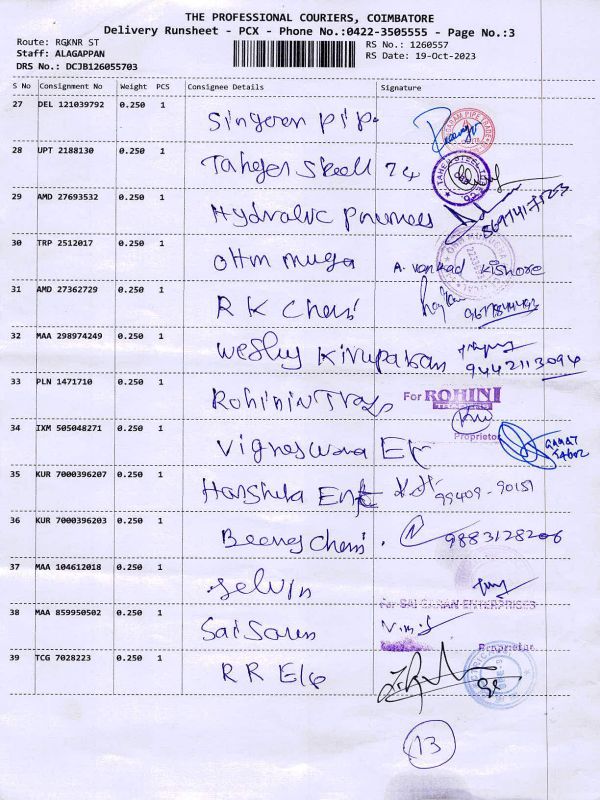 THE PROFESSIONAL COURIERS, COIMBATORE
Delivery Runsheet - PCX - Phone No.:0422-3505555 - Page No.:3
Route: RGKNR ST
RS No.: 1260557
Staff: ALAGAPPAN
RS Date: 19-Oct-2023
DRS No.: DCJB126055703
S No Consignment No Weight PCS Consignee Details Signature
27 DEL 121039792 0.250 1 Singeren pip.
28 UPT 2188130 0.250 1 Taheer Steell 74
29 AMD 27693532 0.250 1 Hydralic
30 TRP 2512017 0.250 1 Ohm muga A. Kishore
31 AMD 27362729 0.250 1 R K Chemi
32 MAA 298974249 0.250 1 Wesley Kirupakaran 9442113094
33 PLN 1471710 0.250 1 Rohinin For ROHINI
Proprietor
34 IXM 505048271 0.250 1 Vigneswara
35 KUR 7000396207 0.250 1 99409-90151
36 KUR 7000396203 0.250 1 Chemi. 9883128206
37 MAA 104612018 0.250 1 Selvin
For SAI SARAN ENTERPRISES
38 MAA 859950502 0.250 1 Sai Saran
Proprietor
39 TCG 7028223 0.250 1 R R Ele
13